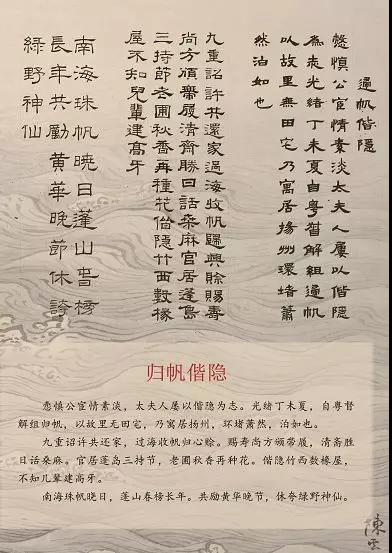 歸帆偕隱
愨慎公宦情素淡太夫人屢以偕隱
為志光緒丁未夏自粵督解組歸帆
以故里無田宅乃寓居揚州環堵蕭
然泊如也
九重詔許共還家過海收帆歸興賒賜壽
尚方頒帶履清齋勝日話桑麻官居蓬島
三持節老圃秋香再種花偕隱竹西數椽
屋不知兒輩建高牙
南海珠帆曉日蓬山春榜
長年共勵黃華晚節休誇
綠野神仙
归帆偕隐
悫慎公宦情素淡，太夫人屡以偕隐为志。光绪丁未夏，自粤督
解组归帆，以故里无田宅，乃寓居扬州，环堵萧然，泊如也。
九重诏许共还家，过海收帆归心赊。赐寿尚方颁带履，清斋胜
日话桑麻。官居蓬岛三持节，老圃秋香再种花。偕隐竹西数椽屋，
不知几辈建高牙。
南海珠帆晓日，蓬山春榜长年。共励黄华晚节，休夸绿野神仙。
陳